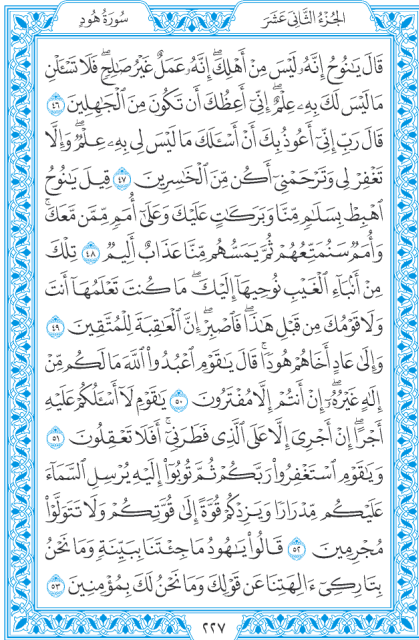 الجُزْءُ الثَّانِي عَشَرَ
سُورَةُ هُودٍ
قَالَ يَٰنُوحُ إِنَّهُۥ لَيْسَ مِنْ أَهْلِكَۖ إِنَّهُۥ عَمَلٌ غَيْرُ صَٰلِحٖۖ فَلَا تَسْـَٔلْنِ
مَا لَيْسَ لَكَ بِهِۦ عِلْمٌۖ إِنِّيٓ أَعِظُكَ أَن تَكُونَ مِنَ ٱلْجَٰهِلِينَ ٤٦
قَالَ رَبِّ إِنِّيٓ أَعُوذُ بِكَ أَنْ أَسْـَٔلَكَ مَا لَيْسَ لِي بِهِۦ عِلْمٌۖ وَإِلَّا
تَغْفِرْ لِي وَتَرْحَمْنِيٓ أَكُن مِّنَ ٱلْخَٰسِرِينَ ٤٧ قِيلَ يَٰنُوحُ
ٱهْبِطْ بِسَلَٰمٖ مِّنَّا وَبَرَكَٰتٍ عَلَيْكَ وَعَلَىٰٓ أُمَمٖ مِّمَّن مَّعَكَۚ
وَأُمَمٌ سَنُمَتِّعُهُمْ ثُمَّ يَمَسُّهُم مِّنَّا عَذَابٌ أَلِيمٌ ٤٨ تِلْكَ
مِنْ أَنۢبَآءِ ٱلْغَيْبِ نُوحِيهَآ إِلَيْكَۖ مَا كُنتَ تَعْلَمُهَآ أَنتَ
وَلَا قَوْمُكَ مِن قَبْلِ هَٰذَاۖ فَٱصْبِرْۖ إِنَّ ٱلْعَٰقِبَةَ لِلْمُتَّقِينَ ٤٩
وَإِلَىٰ عَادٍ أَخَاهُمْ هُودٗاۚ قَالَ يَٰقَوْمِ ٱعْبُدُوا۟ ٱللَّهَ مَا لَكُم مِّنْ
إِلَٰهٍ غَيْرُهُۥٓۖ إِنْ أَنتُمْ إِلَّا مُفْتَرُونَ ٥٠ يَٰقَوْمِ لَآ أَسْـَٔلُكُمْ عَلَيْهِ
أَجْرًاۖ إِنْ أَجْرِيَ إِلَّا عَلَى ٱلَّذِي فَطَرَنِيٓۚ أَفَلَا تَعْقِلُونَ ٥١
وَيَٰقَوْمِ ٱسْتَغْفِرُوا۟ رَبَّكُمْ ثُمَّ تُوبُوٓا۟ إِلَيْهِ يُرْسِلِ ٱلسَّمَآءَ
عَلَيْكُم مِّدْرَارٗا وَيَزِدْكُمْ قُوَّةً إِلَىٰ قُوَّتِكُمْ وَلَا تَتَوَلَّوْا۟
مُجْرِمِينَ ٥٢ قَالُوا۟ يَٰهُودُ مَا جِئْتَنَا بِبَيِّنَةٖ وَمَا نَحْنُ
بِتَارِكِيٓ ءَالِهَتِنَا عَن قَوْلِكَ وَمَا نَحْنُ لَكَ بِمُؤْمِنِينَ ٥٣
٢٢٧